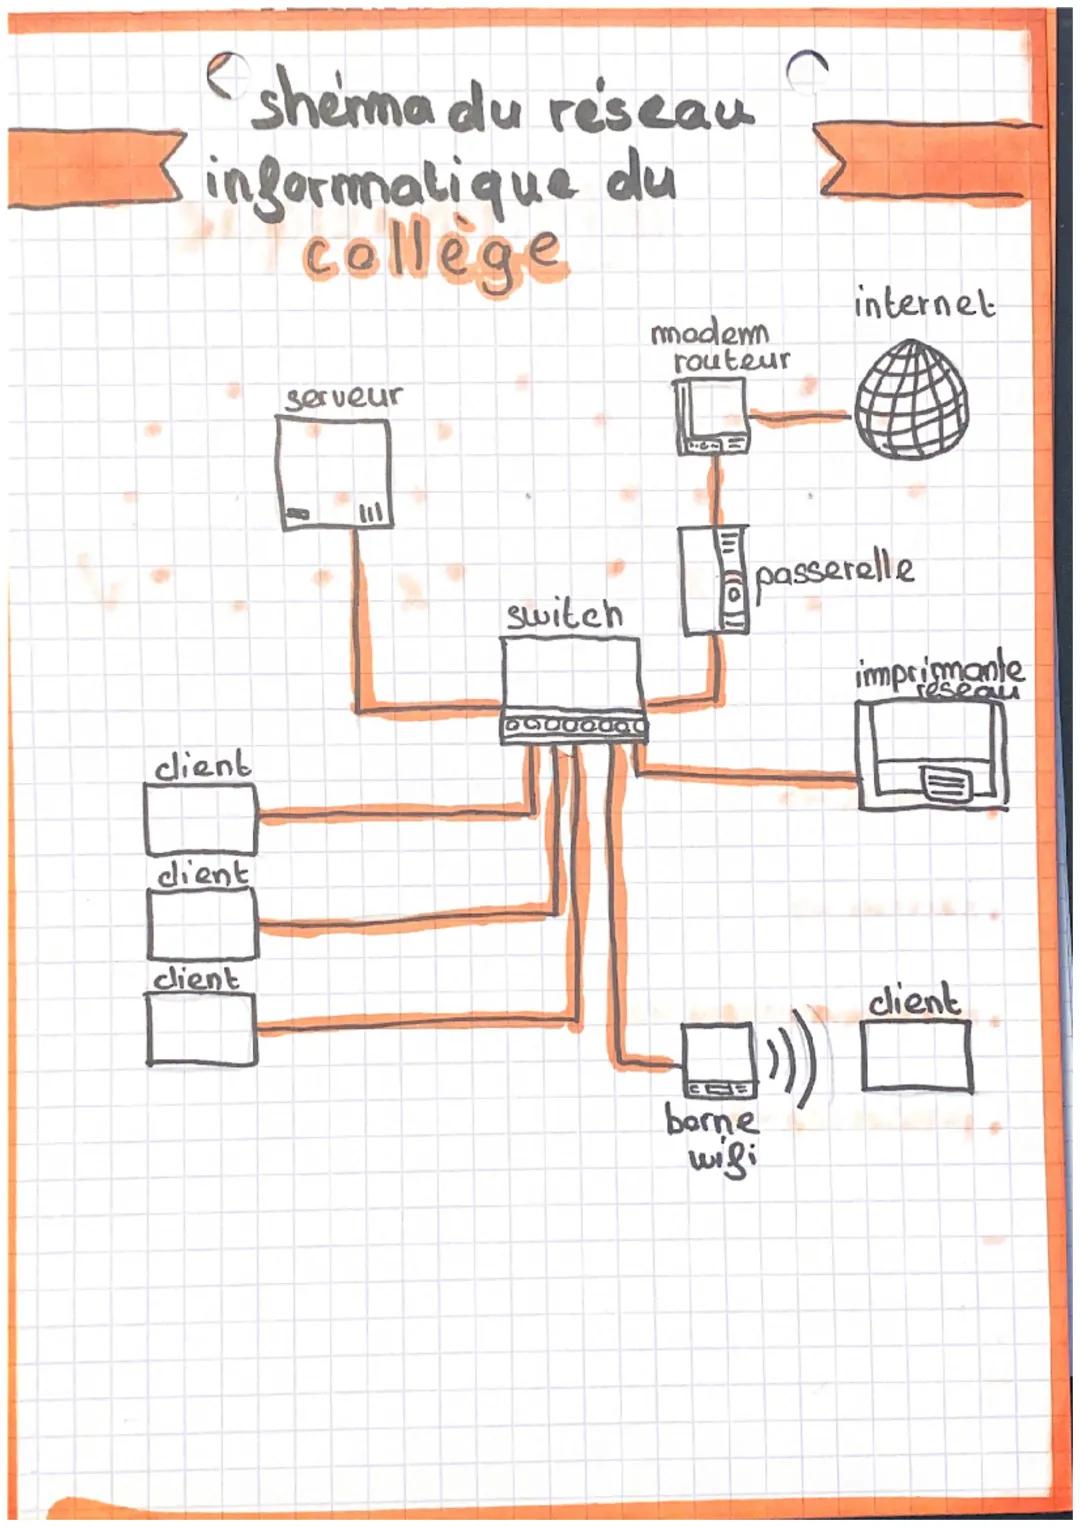 shéma du réseau
informatique du
collège
internet
modem
routeur
serveur
passerelle
switch
imprimante
réseau
client
client
client
client
borne
wifi